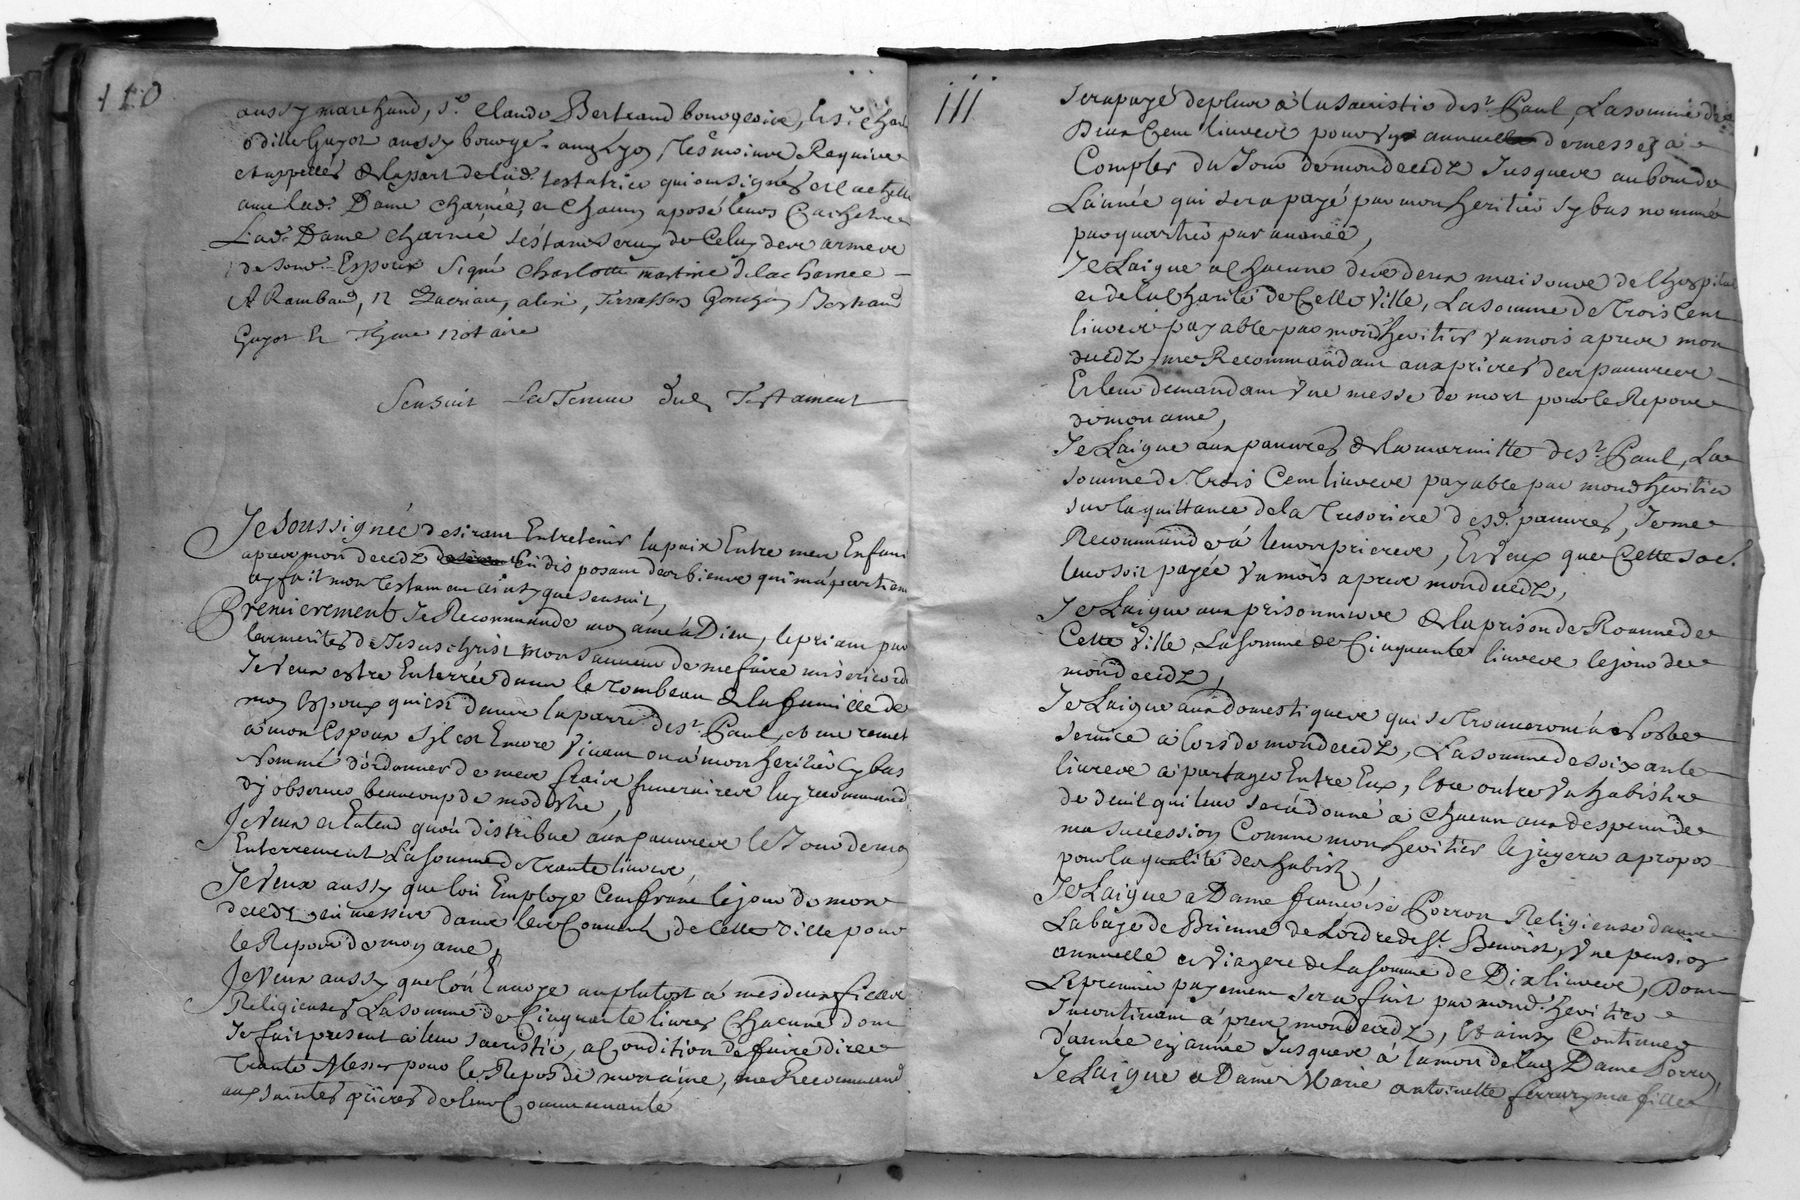 110
aussy marchand, sr. Claude Bertrand bourgeoise, le sr. Charle
odille Guyot aussy bourgs. aud Lyon, tesmoinve Requive
et appellés de la part de lad. testatrice qui ont signés et cachetté
avec lad. Dame charnée, et Chacun aposé leurs Cachetve
Lad. Dame charnée s'estant servy de Celuy deve armeve
de sond. Espoux Signé Charlotte martine de la charnée
A Rambaud, alexi, Terrasson Gonchon Bertrand
Guyot & notaire
Sensuit La Teneur dud. Testament
Je soussignée desirant Entretenir la paix Entre mes Enfant
apreve mon decedz En disposant des bienve qui m'apartien
ay fait mon testament ainsy que sensuit,
Premierement Je Recommande mon ame a Dieu, le priant par
les merites de Jesus christ mon sauveur de me faire misericord
Je Veux estre Enterrée dans le tombeau de la famille de
mon Espoux qui est dans la parroi de st. Paul, et me remet
a mon Espoux s'il est Encore Vivant ou a mon heritié Cy bas
Nommé d'ordonner de meve fraive funeraireve luy recommand
d'y observer beaucoup de modestie,
Je Veux et Entend qu'on distribue aux pauvreve le Jour de mon
Enterrement La somme de Trante livreve,
Je Veux aussy que lon Employe Cent franc le jour de mon
decedz en messeve dans les Couvents de Cette Ville pour
le Repove de mon ame,
Je Veux aussy que lon Envoye au plutost a mes deux filleve
Religieuses La somme de Cinquante livres Chacune dont
Je fait present a leur sacristie, a Condition de faire dire
Trante Messes pour le Repos de mon ame, me Recommand
aux saintes prieres de leur Communauté
111
Sera payé de pluve a la sacristie de st. Paul La somme de
Deux Cent livreve pour Vn annuel de messes a
Compter du Jour de mon decedz Jusqueve au bout de
L'année qui sera payé par mon heritié cy bas nommé
par quartié par avance,
Je Laigue a Chacune deve deux maisonve de l'hospital
et de la Charité de Cette Ville, La somme de Trois Cent
livreve payable par mond. heritier Vn mois apreve mon
decedz, me Recommandant aux prieres des pauvreve
Et leur demandant Vne messe de mort pour le Repove
de mon ame,
Je Laigue aux pauvres de la marmitte de st. Paul, La
somme de Trois Cent livreve payable par mond. heritier
sur la quittance de la Tresoriere desd. pauvres, Je me
Recommande a leurs priereve, Et Veux que Cette so.e
leur soit payée Vn mois apreve mon decedz,
Je Laigue aux prisonnieve de la prison de Roanne de
Cette Ville La somme de Cinquante livreve le jour de
mon decedz,
Je Laigue aux domestiqueve qui se Trouveront a Nostre
service a lors de mon decedz, La somme de soixante
livreve a partager Entre Eux, Ce outre Vn habist
de deuil qui leur sera donné a chacun aux despens de
ma succession Comme mon heritier le jugera a propos
pour la qualité des habist,
Je Laigue a Dame françoise Porron Religieuse dans
Labaye de Brienne de Lordre de st. Benoist, Vne pension
annuelle et Viagere de La somme de Dix livreve, Dont
Le premier payement sera fait par mond. heritier
Incontinant apreve mon decedz, Et ainsy Continuer
d'année en année Jusqueve a la mort de lad. Dame Porron,
Je Laigue a Dame Marie antoinette ferrary ma fille